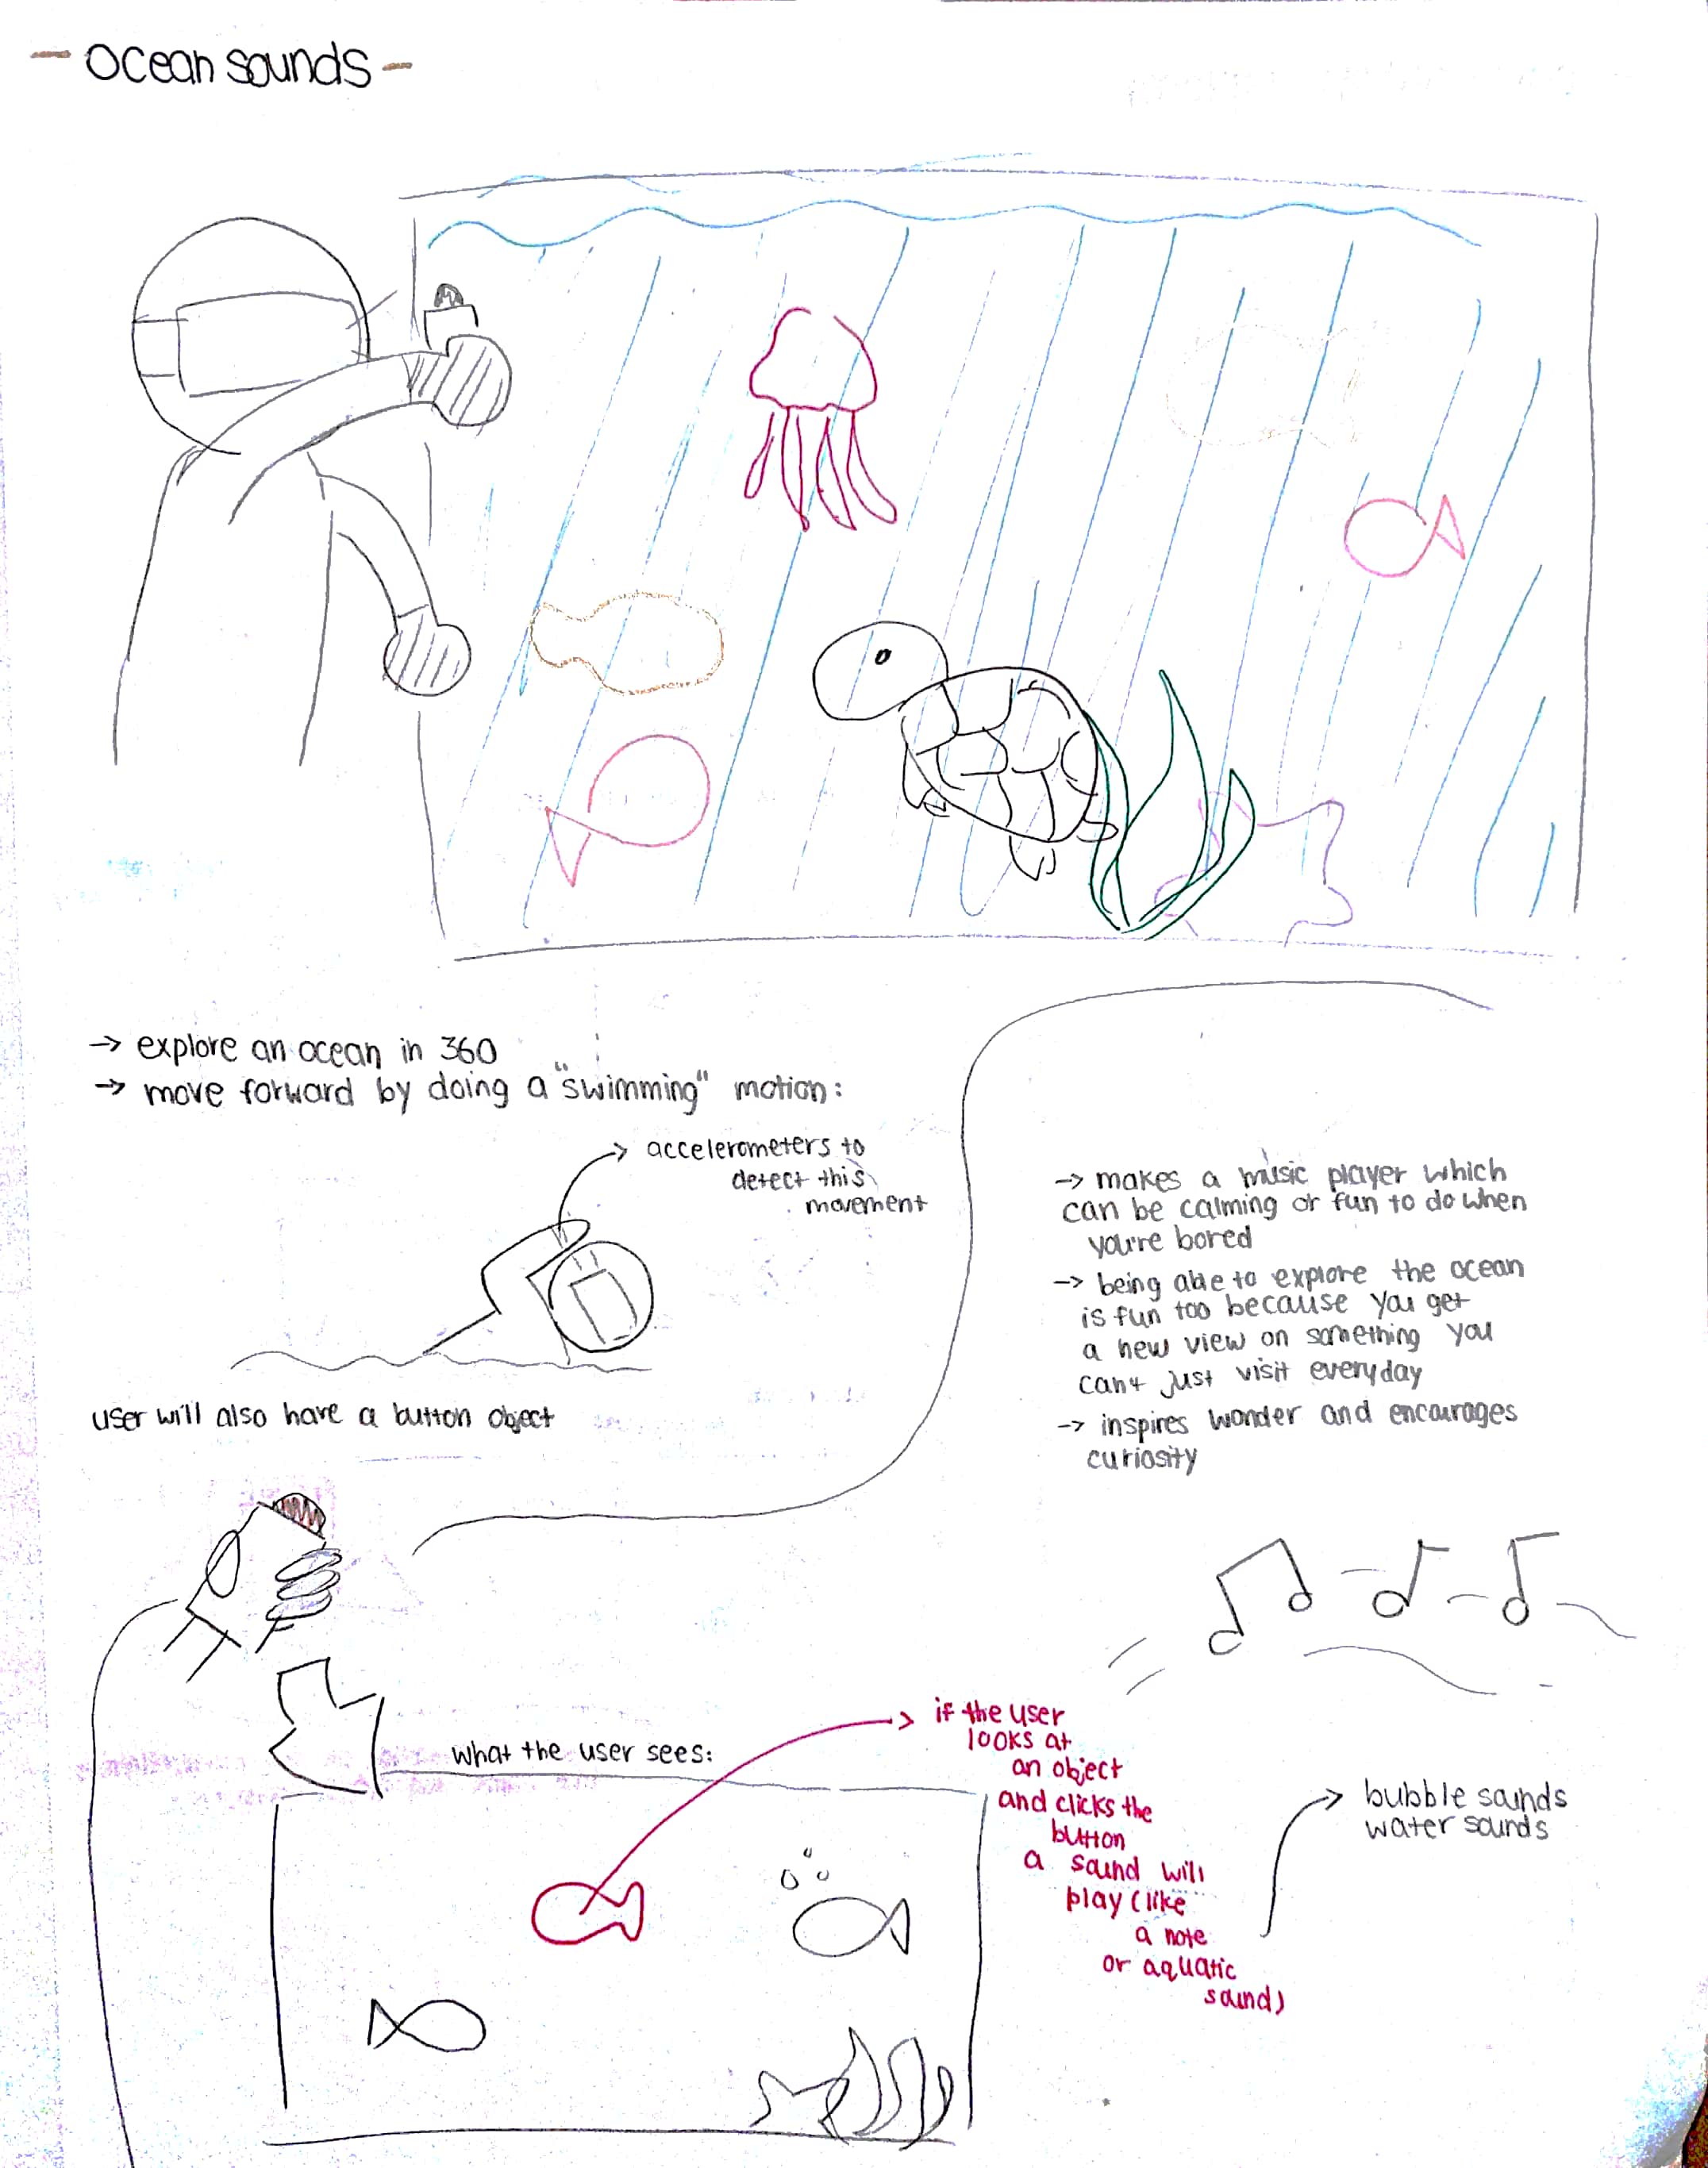 - Ocean sounds -
→ explore an ocean in 360
→ move forward by doing a "swimming" motion:
accelerometers to
detect this
movement
user will also have a button object
→ makes a music player which
can be calming or fun to do when
you're bored
→ being able to explore the ocean
is fun too because you get
a new view on something you
can't just visit everyday
→ inspires wonder and encourages
curiosity
what the user sees:
if the user
looks at
an object
and clicks the
button
a sound will
play (like
a note
or aquatic
sound)
bubble sounds
water sounds